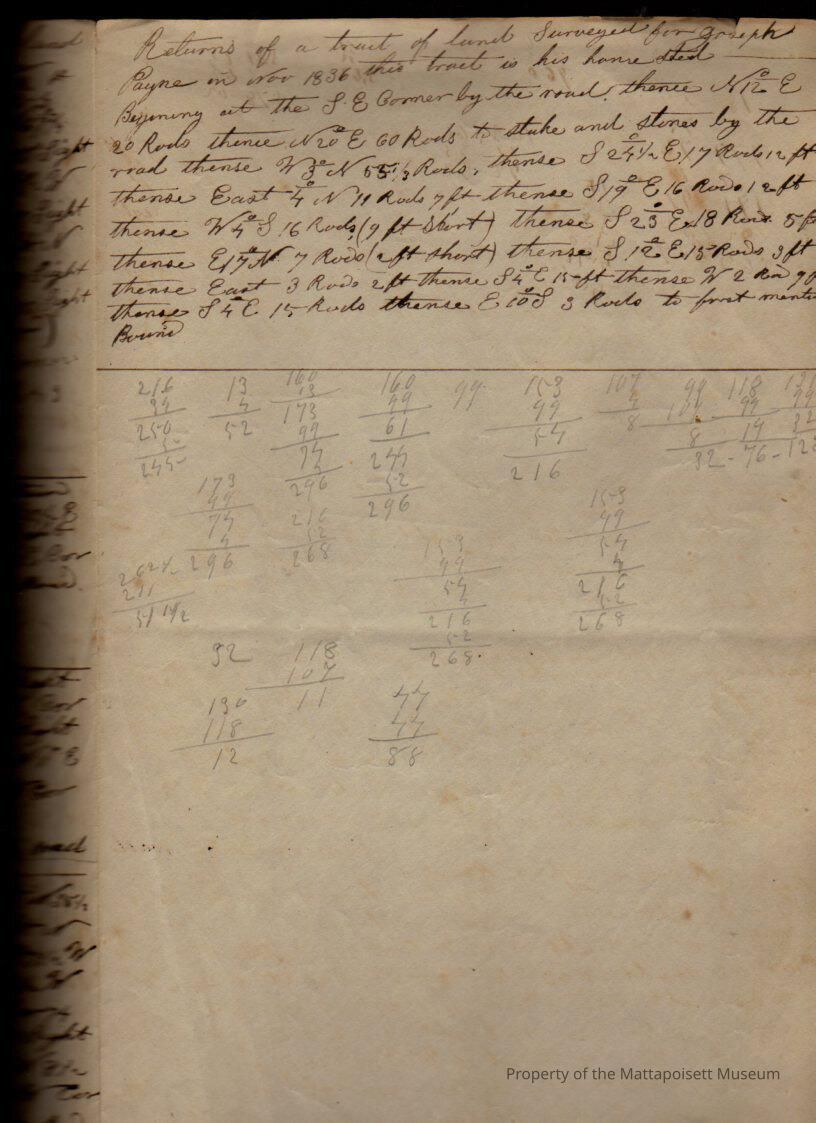 Returns of a tract of land Surveyed for Joseph
Payne in Nov 1836 this tract is his home sted
Begining at the S.E Corner by the road. thence N12°E
20 Rods thence N20°E 60 Rods to stake and stones by the
road thense W3°N 55 1/2 Rods, thense S 24 1/2°E 17 Rods 12 ft
thense East 4°N 11 Rods 7 ft thense S19°E 16 Rods 12 ft
thense W4°S 16 Rods (9 ft short) thense S 23°E 18 Rods 5 f
thense E17°N 7 Rods (2 ft short) thense S 12°E 15 Rods 3 ft
thense East 3 Rods 2 ft thense S4°E 15 ft thense W 2 Rd 9 f
thense S4°E 15 Rods thense E10°S 3 Rods to first menti
Bound
216 13 160 160 99 153 107 99 118
4 13 99 99 107 99
250 52 173 61 54 8 8 19
245 99 244 216 32 - 76 -
74 52
296 296
173 216 153
99 52 99
74 268 54
4 4
296 216
52
268
153
99
54
216
52
268
262 1/2
211
51 1/2
32 118
107
11
130
118
12
44
44
88
Property of the Mattapoisett Museum